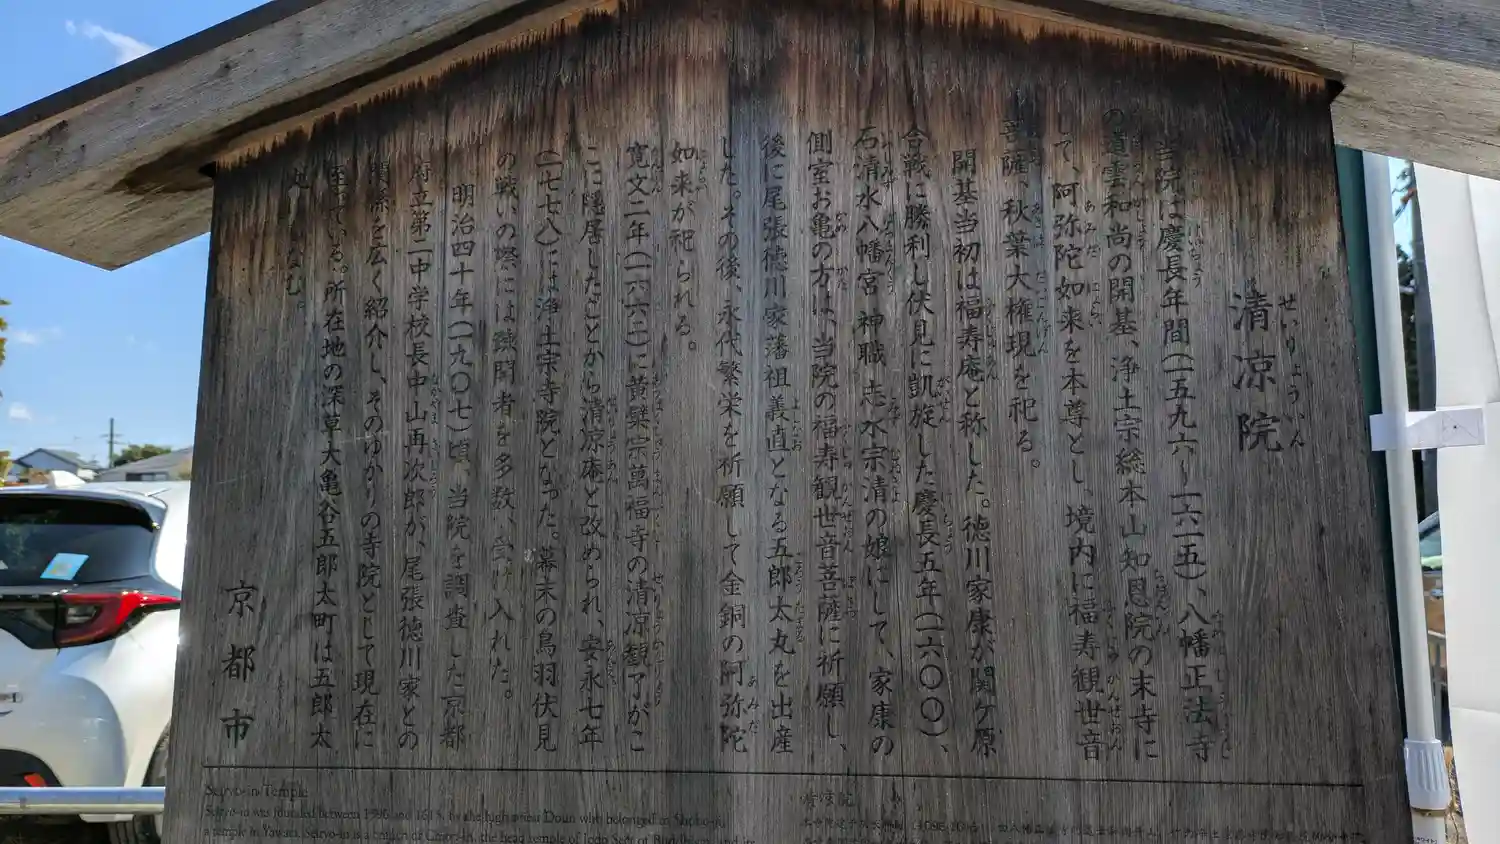 清凉院
せいりょういん
当院は慶長年間(一五九六〜一六一五)、八幡正法寺
の道雲和尚の開基、浄土宗総本山知恩院の末寺に
して、阿弥陀如来を本尊とし、境内に福寿観世音
菩薩、秋葉大権現を祀る。
開基当初は福寿庵と称した。徳川家康が関ケ原
合戦に勝利し伏見に凱旋した慶長五年(一六〇〇)、
石清水八幡宮神職志水宗清の娘にして、家康の
側室お亀の方は、当院の福寿観世音菩薩に祈願し、
後に尾張徳川家藩祖義直となる五郎太丸を出産
した。その後、永代繁栄を祈願して金銅の阿弥陀
如来が祀られる。
寛文二年(一六六二)に黄檗宗萬福寺の清凉観了がこ
こに隠居したことから清凉庵と改められ、安永七年
(一七七八)には浄土宗寺院となった。幕末の鳥羽伏見
の戦いの際には戦闘者を多数、受け入れた。
明治四十年(一九〇七)頃、当院を調査した京都
府立第二中学校長中山再次郎が、尾張徳川家との
関係を広く紹介し、そのゆかりの寺院として現在に
至っている。所在地の深草大亀谷五郎太町は五郎太
丸にちなむ。
京都市
Seiryo-in Temple
Seiryo-in was founded between 1596 and 1615, by the high priest Doun who belonged to Shobo-ji,
a temple in Yawata. Seiryo-in is a branch of Chion-in, the head temple of Jodo Sect of Buddhism, and its
清凉院